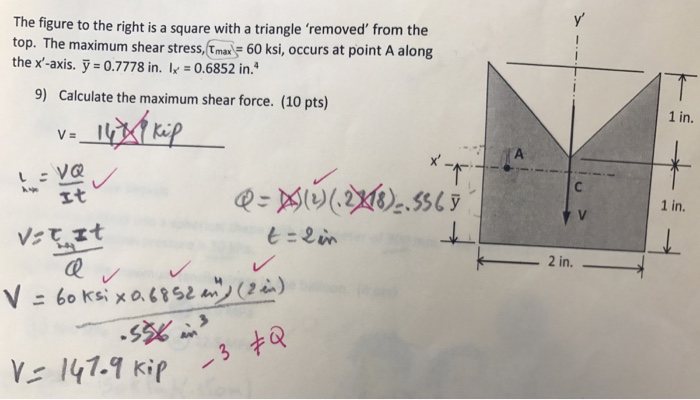 The figure to the right is a square with a triangle ‘removed’ from the
top. The maximum shear stress, τmax = 60 ksi, occurs at point A along
the x'-axis. ȳ = 0.7778 in. Ix' = 0.6852 in.⁴
9) Calculate the maximum shear force. (10 pts)
V = 147.9 kip
= VQ
It
Q = (2)(.2778)=.556
t = 2in
V = τ It
Q
V = 60 ksi x 0.6852 in⁴ (2in)
.556 in³
-3 ≠Q
V = 147.9 kip
y'
1 in.
x'
A
C
ȳ
V
1 in.
2 in.